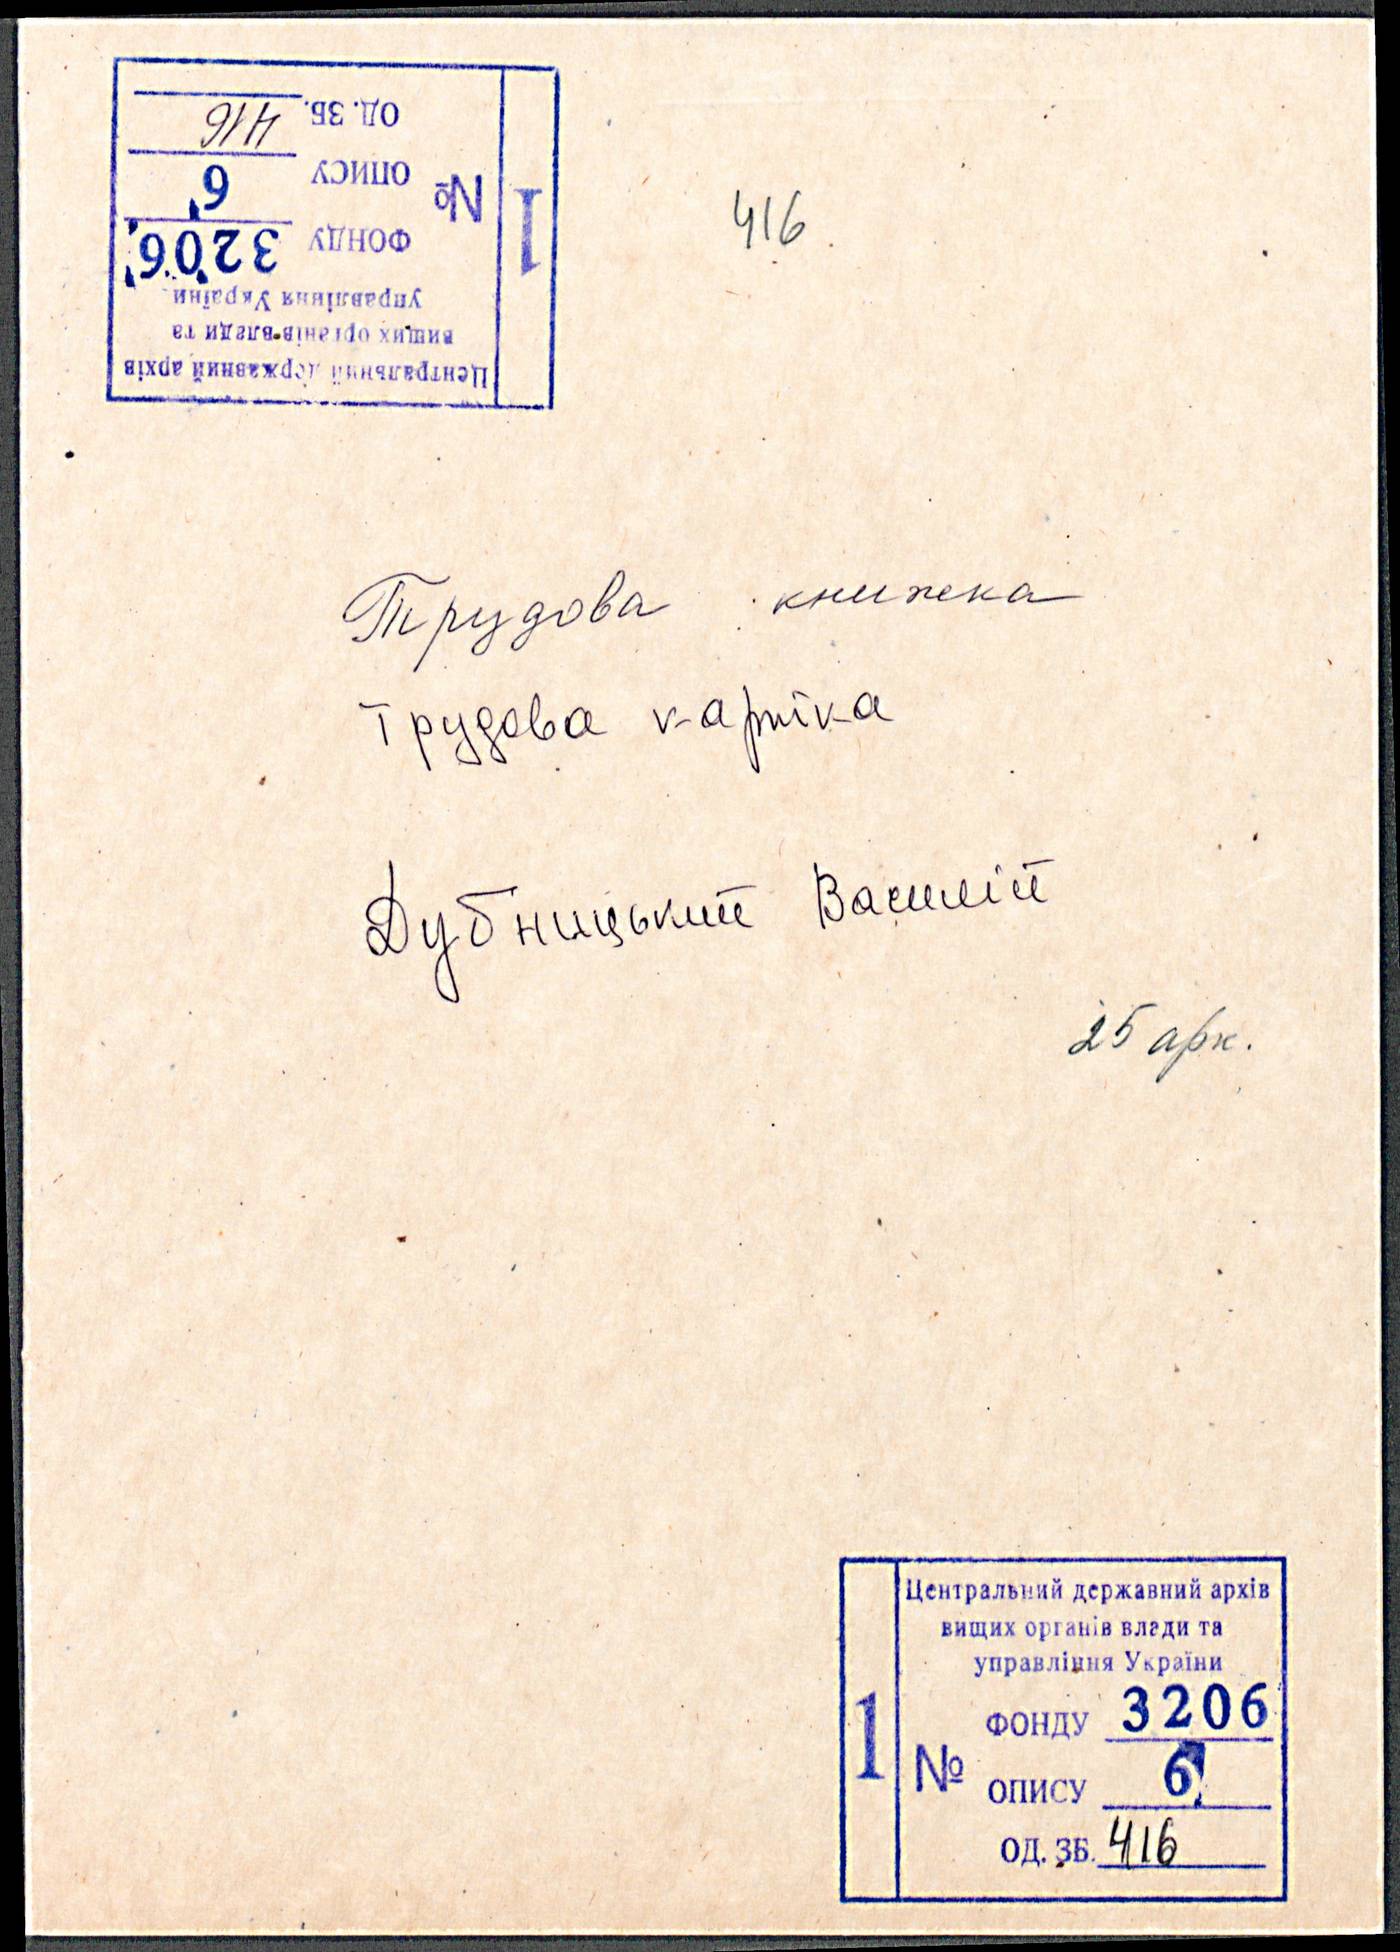 1
Центральний державний архів
вищих органів влади та
управління України
№
ФОНДУ 3206
ОПИСУ 6
ОД. ЗБ. 416
416
Трудова книжка
Трудова картка
Дубницький Василій
25 арк.
1
Центральний державний архів
вищих органів влади та
управління України
№
ФОНДУ 3206
ОПИСУ 6
ОД. ЗБ. 416